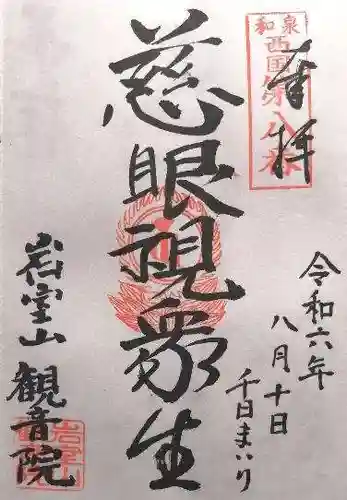 奉拝
和泉
西国第八番
令和六年
八月十日
千日まいり
慈眼視衆生
岩室山
観音院